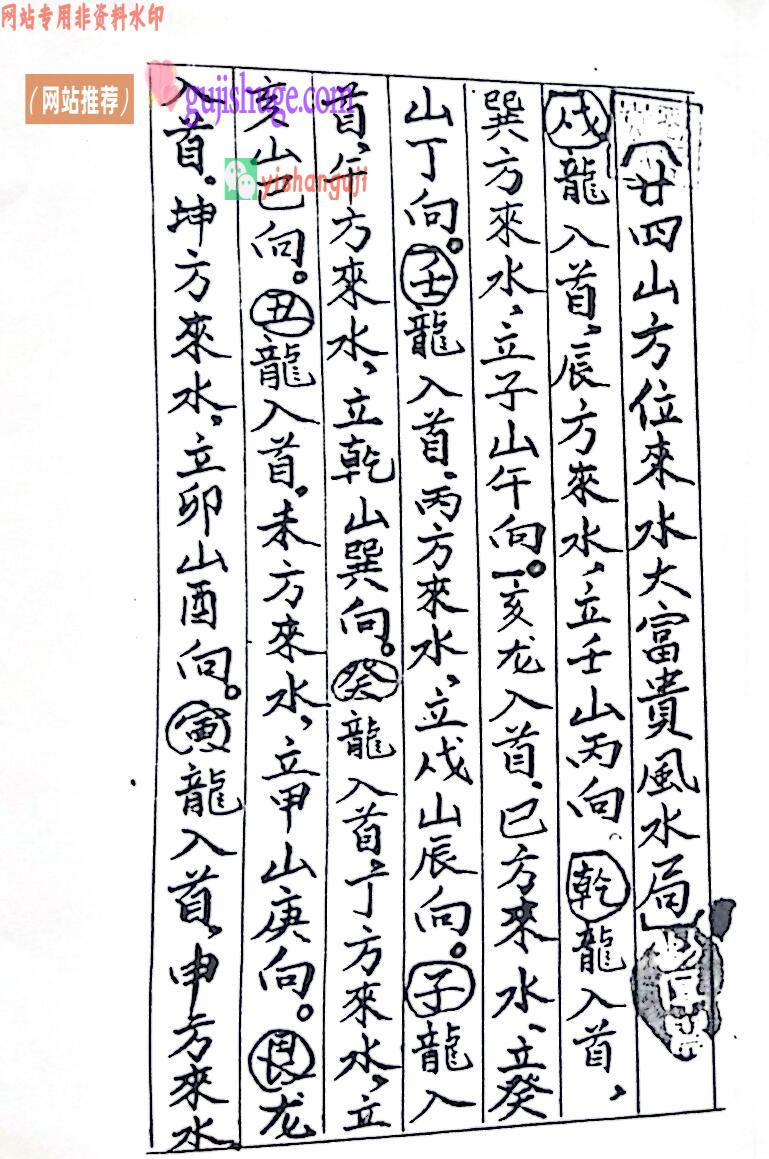 网站专用非资料水印
（网站推荐）
gujishuge.com
yishanguji
〔廿四山方位來水大富貴風水局〕
戌龍入首，辰方來水，立壬山丙向。乾龍入首，
巽方來水，立子山午向。亥龙入首，巳方來水，立癸
山丁向。壬龍入首，丙方來水，立戌山辰向。子龍入
首，午方來水，立乾山巽向。癸龍入首，丁方來水，立
亥山巳向。丑龍入首。未方來水，立甲山庚向。艮龙
入首。坤方來水，立卯山酉向。寅龍入首，申方來水